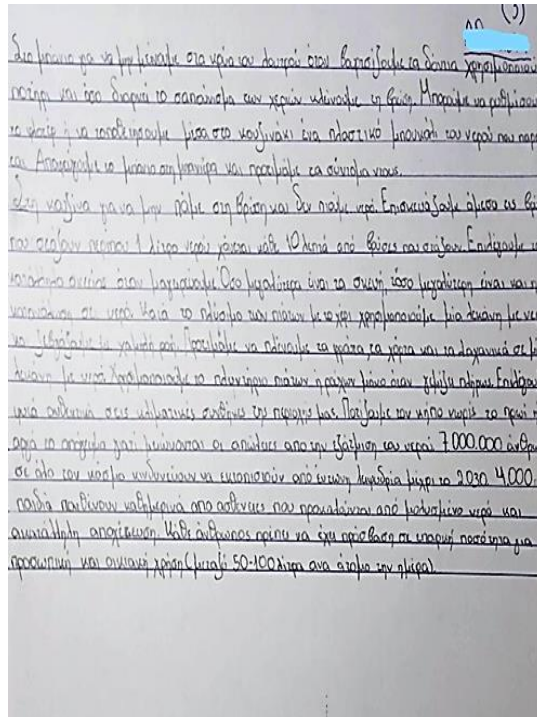 (3)
Στο μπάνιο για να μην μένουμε στα κρύα του λουτρού όταν βουρτσίζουμε τα δόντια χρησιμοποιούμε
ποτήρι και όσο διαρκεί το σαπούνισμα των χεριών κλείνουμε τη βρύση. Μπορούμε να ρυθμίσουμε
το φλοτέρ ή να τοποθετήσουμε μέσα στο καζανάκι ένα πλαστικό μπουκάλι του νερού που
και Αποφεύγουμε το μπάνιο στη μπανιέρα και προτιμάμε τα σύντομα ντους.
Στη κουζίνα για να μην πάμε στη βρύση και δεν πιούμε νερό. Επισκευάζουμε άμεσα τις
που στάζουν περίπου 1 λίτρο νερού χάνεται κάθε 10 λεπτά από βρύσες που στάζουν. Επιλέγουμε
κατάλληλο σκεύος όταν μαγειρεύουμε Όσο μεγαλύτερα είναι τα σκεύη, τόσο μεγαλύτερη είναι και η
κατανάλωση σε νερό. Κατά το πλύσιμο των πιάτων με το χέρι χρησιμοποιούμε μια λεκάνη με
να ξεβγάζουμε με χαμηλή ροή. Προτιμάμε να πλένουμε τα φρούτα τα χόρτα και τα λαχανικά σε
λεκάνη με νερό. Χρησιμοποιούμε το πλυντήριο πιάτων ή ρούχων μόνο όταν γεμίζει πλήρως. Επιλέγουμε
φυτά ανθεκτικά στις κλιματικές συνθήκες της περιοχής μας. Ποτίζουμε τον κήπο νωρίς το πρωί ή
αργά το απόγευμα γιατί μειώνονται οι απώλειες από την εξάτμιση του νερού 7.000.000
σε όλο τον κόσμο κινδυνεύουν να εκτοπιστούν από έντονη λειψυδρία μέχρι το 2030 4.000
παιδιά πεθαίνουν καθημερινά από ασθένειες που προκαλούνται από μολυσμένο νερό και
ακατάλληλη αποχέτευση Κάθε άνθρωπος πρέπει να έχει πρόσβαση σε επαρκή ποσότητα για
προσωπική και οικιακή χρήση (μεταξύ 50-100 λίτρα ανα άτομο την ημέρα).